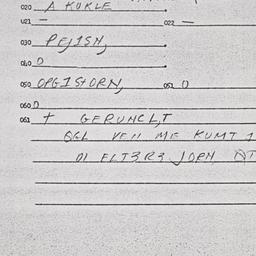 020 A KUKLE
021 — 022 —
030 PEJISN,
040 0
050 OPGISTORN, 051 0
060 0
061 + GERUNCL,T
VEN ME KUMT 1
01 FLT3R3 JORN,